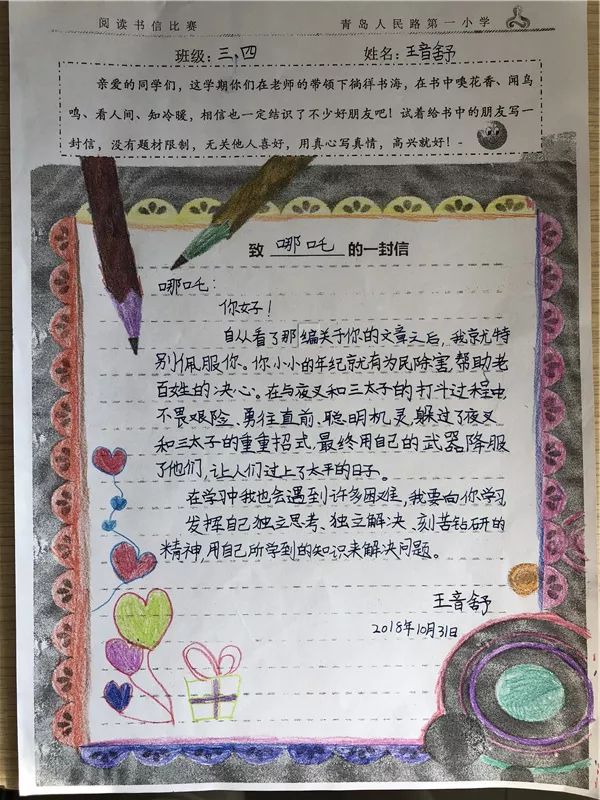 阅读书信比赛 青岛人民路第一小学
班级:三、四 姓名:王音舒
亲爱的同学们，这学期你们在老师的带领下徜徉书海，在书中嗅花香、闻鸟
鸣、看人间、知冷暖，相信也一定结识了不少好朋友吧！试着给书中的朋友写一
封信，没有题材限制，无关他人喜好，用真心写真情，高兴就好！
致 哪吒 的一封信
哪吒：
你好！
自从看了那编关于你的文章之后，我就特
别佩服你。你小小的年纪就有为民除害，帮助老
百姓的决心。在与夜叉和三太子的打斗过程中，
不畏艰险、勇往直前、聪明机灵，躲过了夜叉
和三太子的重重招式，最终用自己的武器降服
了他们，让人们过上了太平的日子。
在学习中我也会遇到许多困难，我要向你学习
发挥自己独立思考、独立解决、刻苦钻研的
精神，用自己所学到的知识来解决问题。
王音舒
2018年10月31日